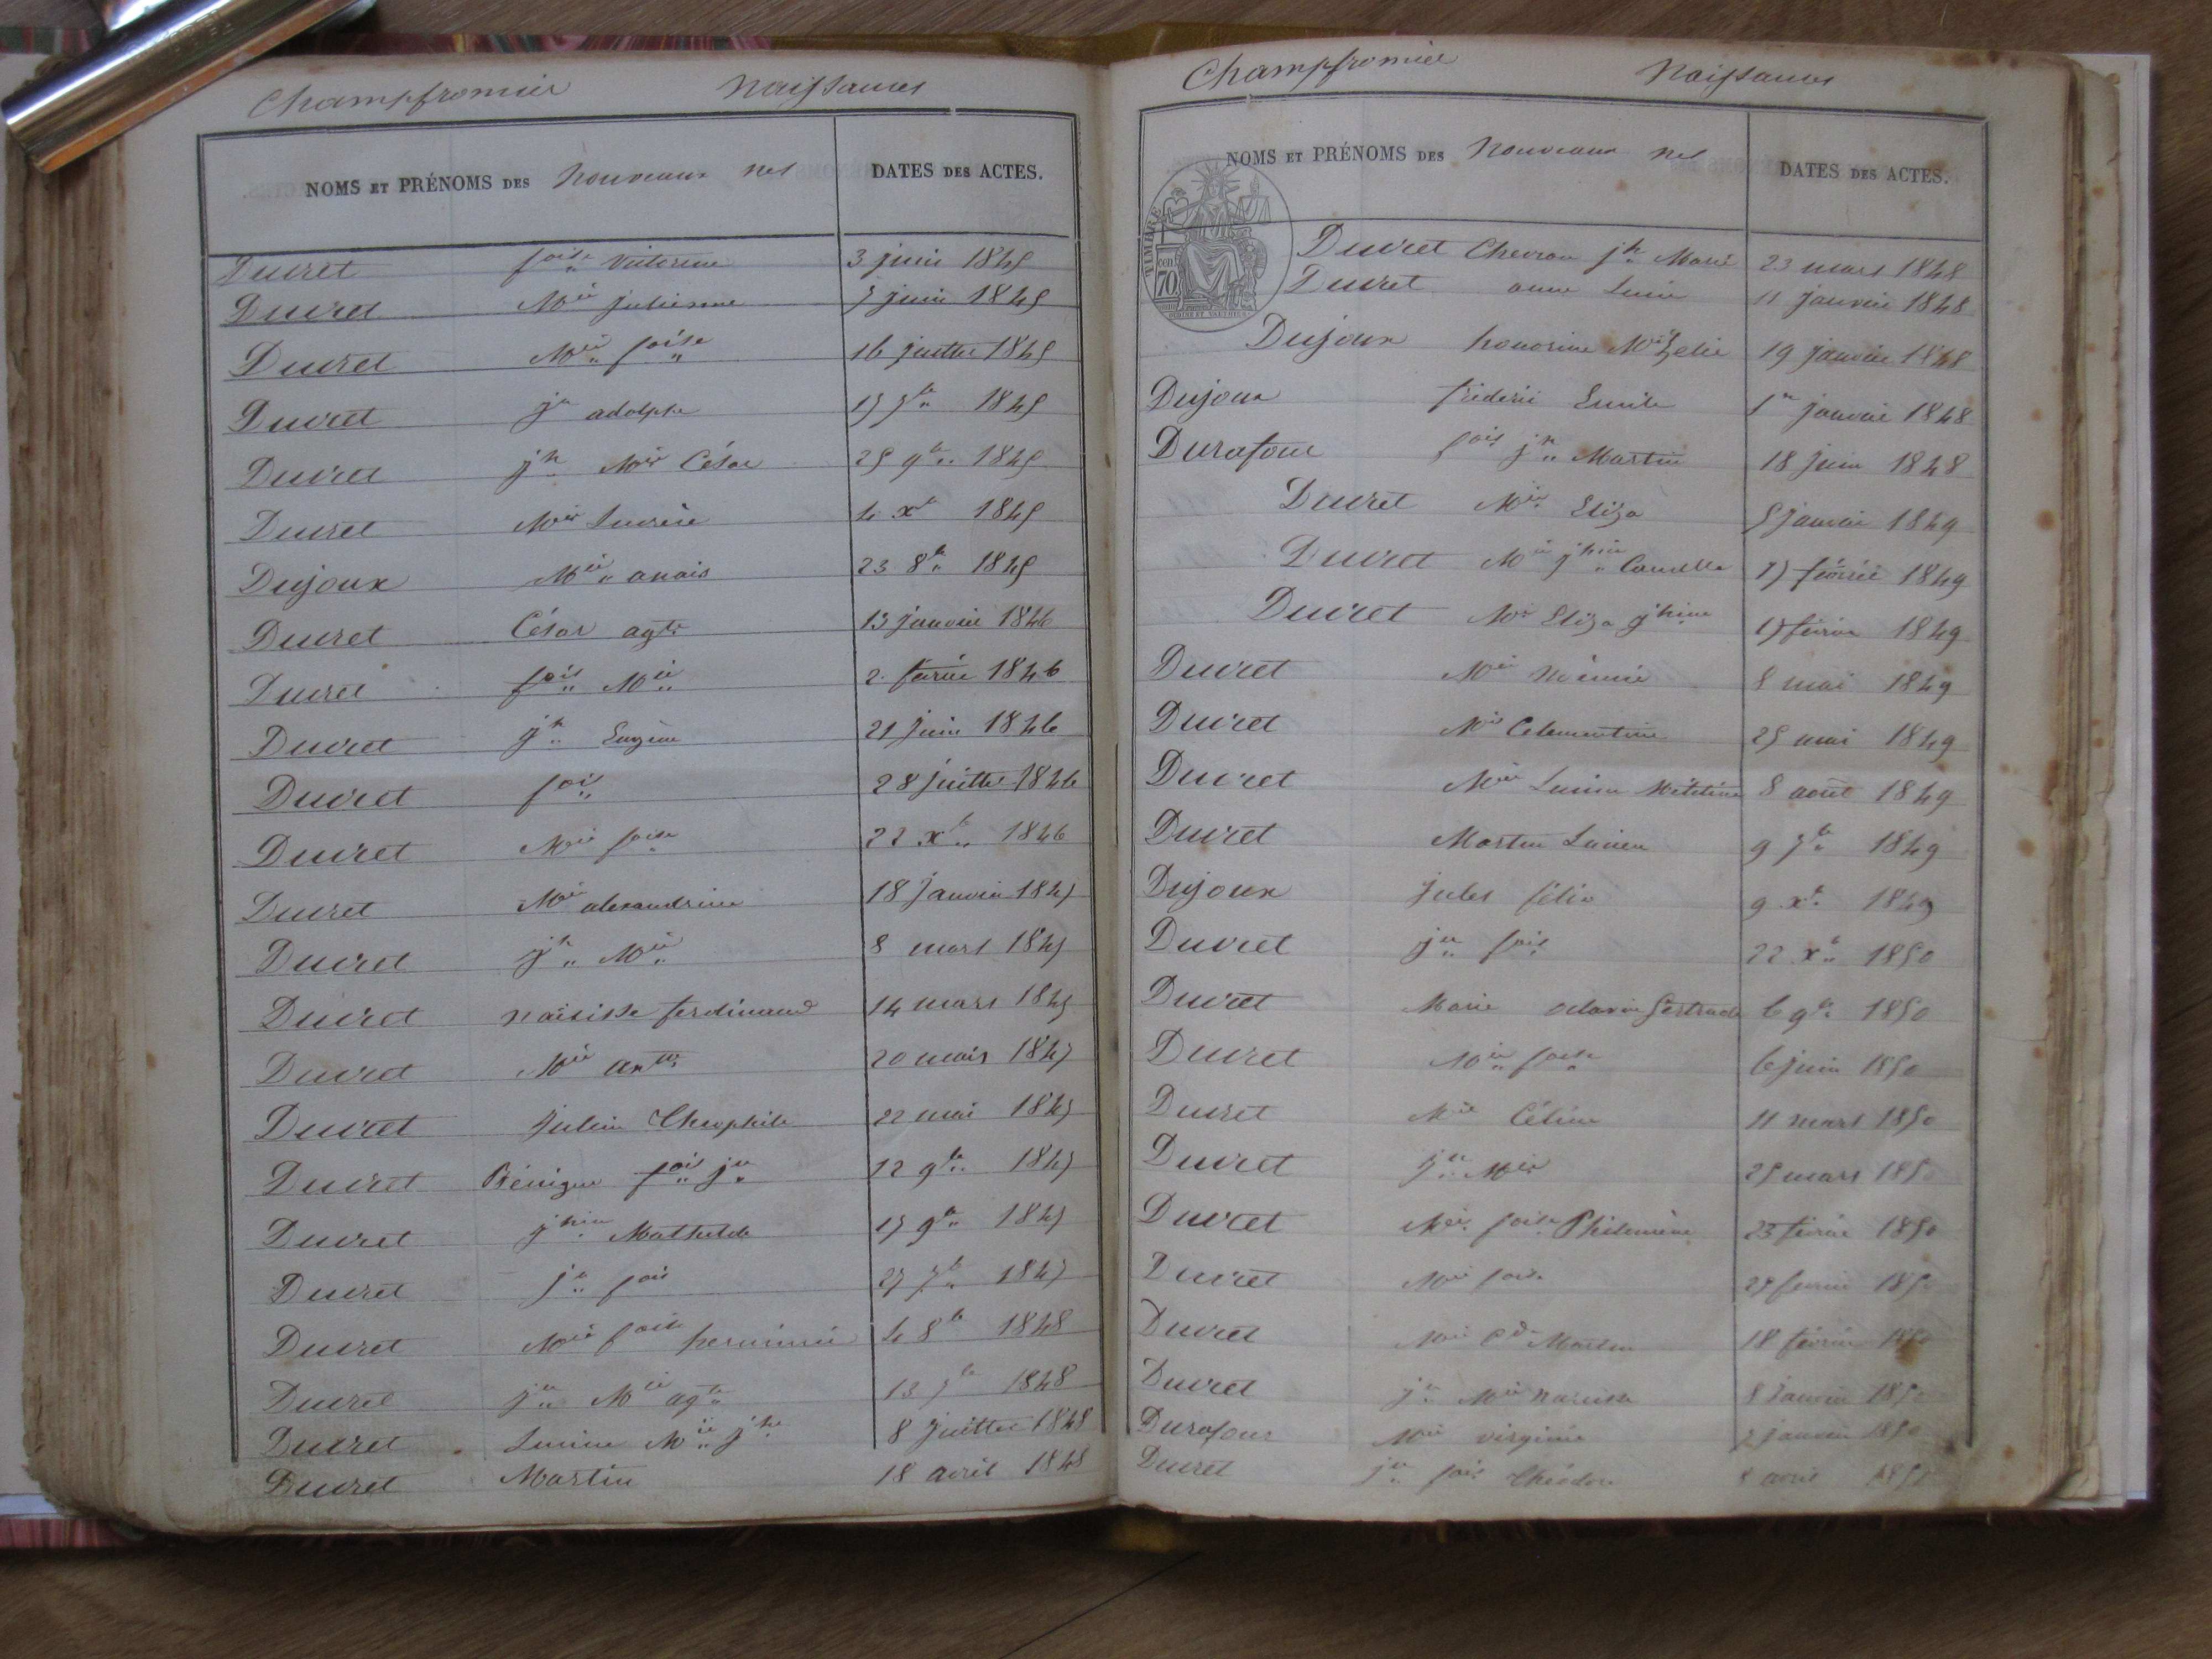 Champfromier Naissances
NOMS ET PRÉNOMS DES Nouveaux nés DATES DES ACTES.
Ducret foise Victorine 3 juin 1845
Ducret Mie Julienne 7 juin 1845
Ducret Mie foise 16 juillet 1845
Ducret jn adolphe 1845
Ducret jh Mie César 25 9bre 1845
Ducret Mie Lucrèce 4 xbre 1845
Dujoux Mie anais 23 8bre 1845
Ducret César agte 13 janvier 1846
Ducret fois Mie 2 février 1846
Ducret jh Eugène 21 juin 1846
Ducret fois 28 juillet 1846
Ducret Mie foise 22 xbre 1846
Ducret Mie alexandrine 18 Janvier 1847
Ducret jh Mie 8 mars 1847
Ducret narcisse ferdinand 14 mars 1847
Ducret Mie 20 mars 1847
Ducret Julien Théophile 22 mai 1847
Ducret Bénigne fois jn 12 9bre 1847
Ducret jhine Mathilde 17 9bre 1847
Ducret jn fois 27 7bre 1847
Ducret Mie foise herminie 4 8bre 1848
Ducret jn Mie agte 13 7bre 1848
Ducret Mie jhe 8 juillet 1848
Ducret Martin 18 avril 1848
Champfromier Naissances
NOMS ET PRÉNOMS DES Nouveaux nés DATES DES ACTES.
TIMBRE
cent
70
Ducret Chevron jh Marie 23 mars 1848
Ducret anne Lucie 11 janvier 1848
Dujoux honorine Mie Zelie 19 janvier 1848
Dujoux frédéric Emile 1er janvier 1848
Durafour fois jh Martin 18 juin 1848
Ducret Mie Eliza 5 janvier 1849
Ducret Mie jhine Camille 17 février 1849
Ducret Mie Eliza jhine 17 février 1849
Ducret Mie Noémie 8 mai 1849
Ducret Mie Celementine 25 mai 1849
Ducret Mie 8 août 1849
Ducret Martin Lucien 9 7bre 1849
Dujoux Jules félix 9 xbre 1849
Ducret jn fois 22 xbre 1850
Ducret Marie octavie Gertrude 6 9bre 1850
Ducret Mie foise 6 juin 1850
Ducret Mie Céline 11 mars 1850
Ducret jn Mie 25 mars 1850
Ducret Mie foise Philomène 23 février 1850
Ducret Mie foise 25 février 1850
Ducret Mie Martin 18 février 1850
Ducret jn Mie narcisse 8 Janvier 1850
Durafour Mie virginie 2 janvier 1850
Ducret jn fois Théodore 8 avril 1850